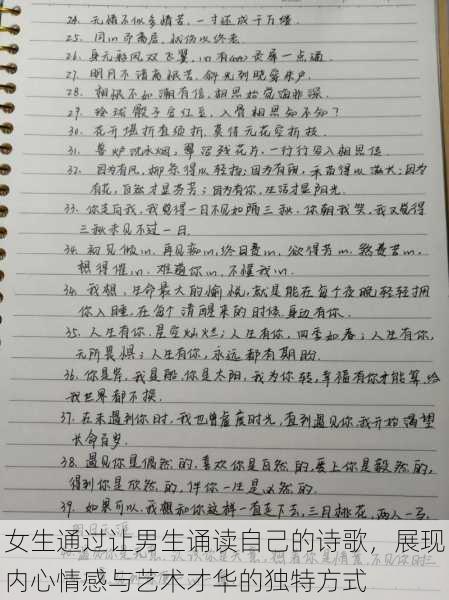 24. 无情不似多情苦，一寸还成千万缕.
25. 同in而离居，忧伤以终老.
26. 身无彩凤双飞翼，in有(in)灵犀一点通
27. 明月不谙离恨苦，斜光到晓穿朱户
28. 相恨不如潮有信，相思始觉海非深.
29. 玲珑骰子安红豆，入骨相思知不知？
30. 花开堪折直须折，莫待无花空折枝.
31. 一行行写入相思传.
32. 因为有风，柳条得以轻扬；因为有雨，禾苗得以茁长；因为
有花，自然才是芬芳；因为有你，生活才显阳光.
33. 你走向我，我觉得一日不见如隔三秋，你朝我笑，我又觉得
三秋未见不过一日.
34. 初见倾in，再见痴in，终日费in，欲得芳in，煞费苦in，
想得催in，难道你in，不懂我in.
34. 我想，生命最大的愉悦，就是能在每个夜晚轻轻拥
你入睡，在每个清醒来的时候身边有你.
35. 人生有你，星空灿烂；人生有你，四季如春；人生有你，
无所畏惧；人生有你，永远都有期盼.
36. 你是岸，我是船，你是太阳，我为你转，幸福有你才能算，给
我世界都不换.
37. 在未遇到你时，我也曾虚度时光，直到遇见你我开始渴望
长命百岁.
38. 遇见你是偶然的，喜欢你是自然的，爱上你是毅然的，
得到你是欣然的，伴你一生是必然的.
39. 如果可以，我想和你这样一直走下去，三月桃花，两人一马，
女生通过让男生诵读自己的诗歌，展现
内心情感与艺术才华的独特方式